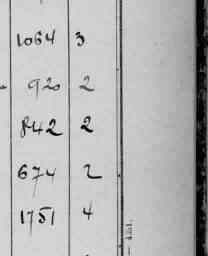 1064 3
920 2
842 2
674 2
1751 4